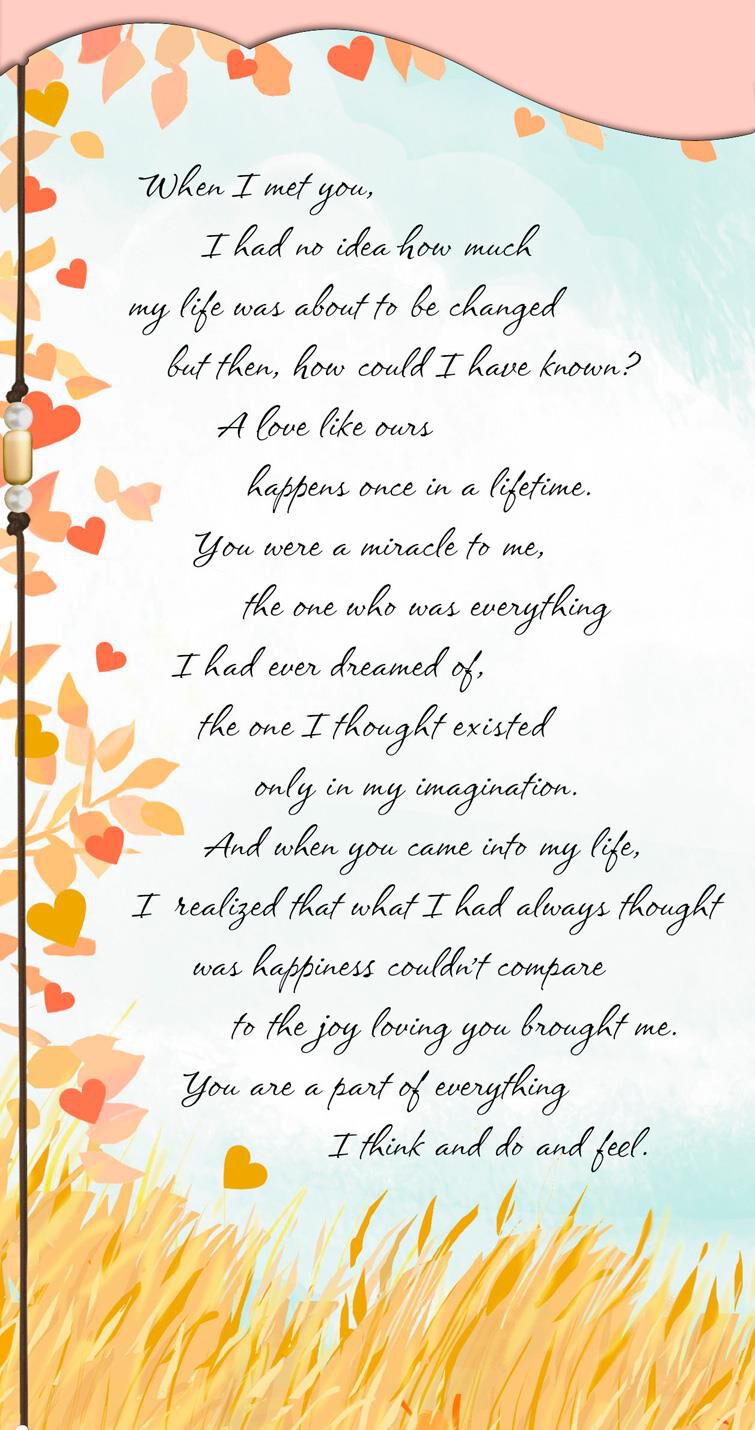 When I met you,
I had no idea how much
my life was about to be changed
but then, how could I have known?
A love like ours
happens once in a lifetime.
You were a miracle to me,
the one who was everything
I had ever dreamed of,
the one I thought existed
only in my imagination.
And when you came into my life,
I realized that what I had always thought
was happiness couldn't compare
to the joy loving you brought me.
You are a part of everything
I think and do and feel.